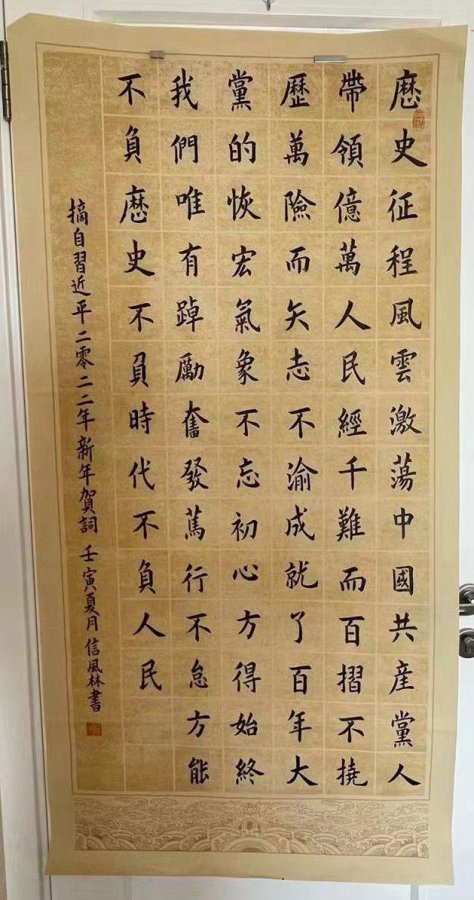 厯史征程風雲激蕩中國共産黨人
帶領億萬人民經千難而百摺不撓
歷萬險而矢志不渝成就了百年大
黨的恢宏氣象不忘初心方得始終
我們唯有踔勵奮發篤行不怠方能
不負厯史不負時代不負人民
摘自習近平二零二二年新年賀詞 壬寅夏月信風林書